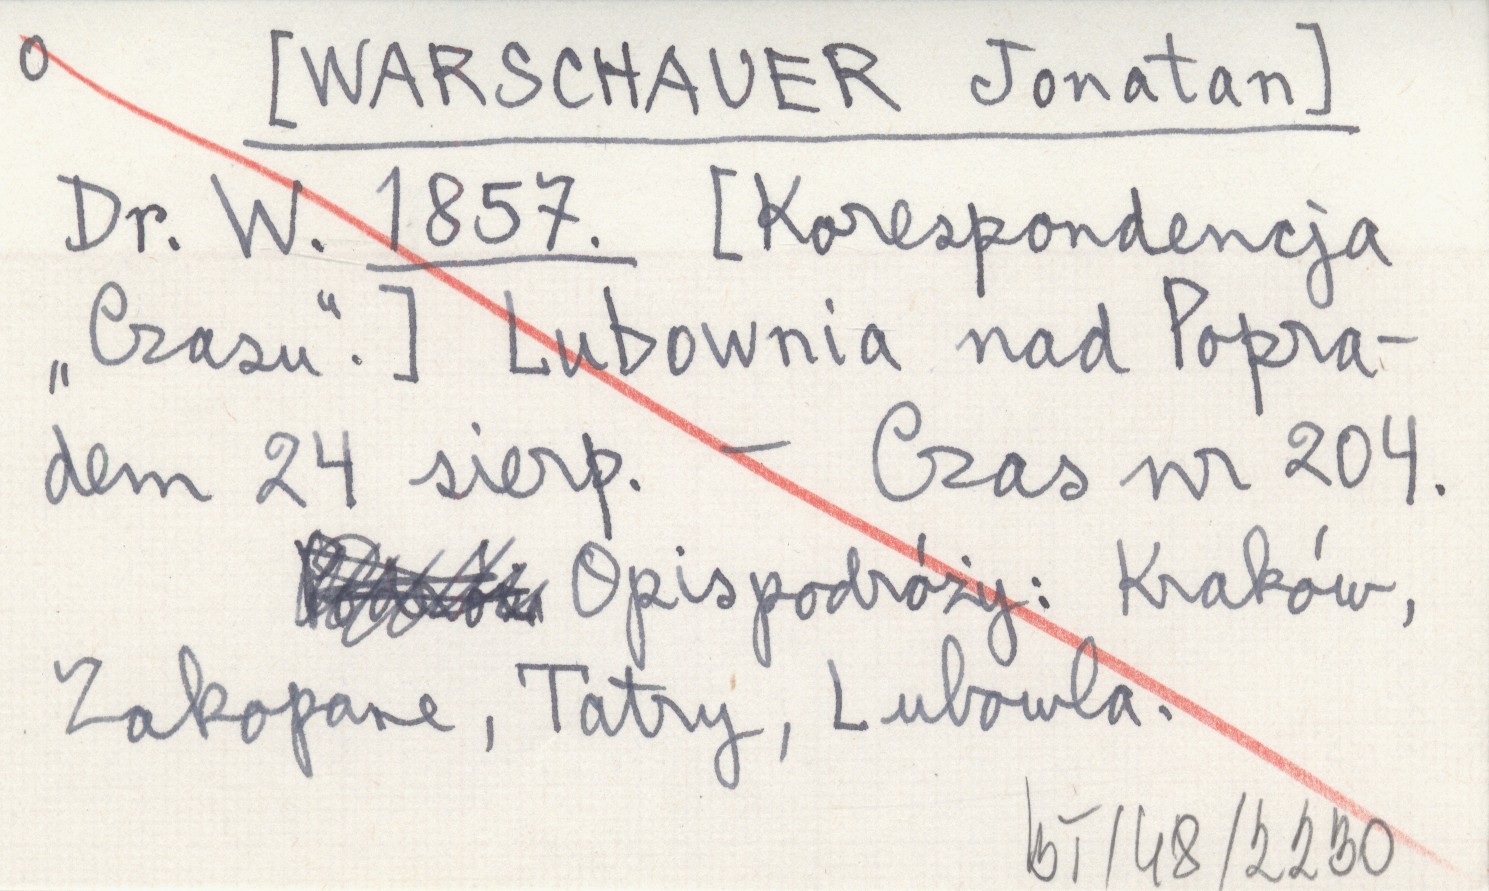 o [WARSCHAUER Jonatan]
Dr. W. 1857. [Korespondencja
„Czasu“.] Lubownia nad Popra-
dem 24 sierp. – Czas nr 204.
Opis podróży: Kraków,
Zakopane, Tatry, Lubowla.
BT/48/2230